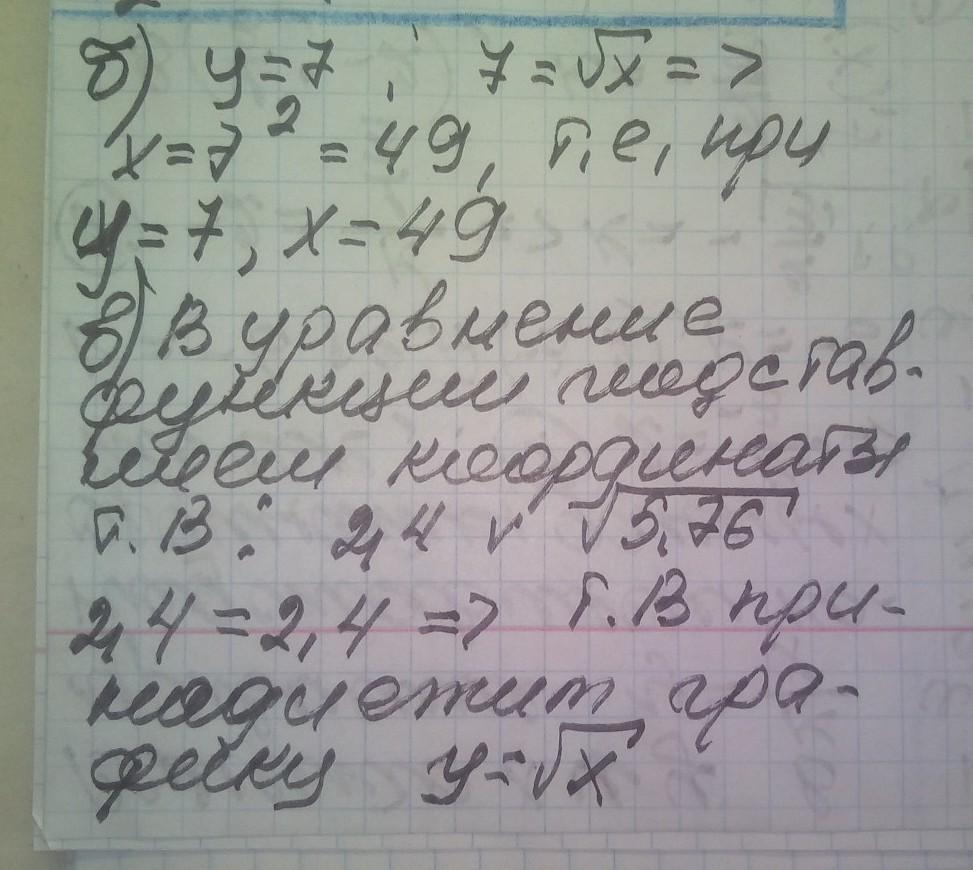 б) y=7 ; 7=√x =>
x=7² =49, т.е, при
y=7, x=49
в) В уравнение
функции подстав-
ляем координаты
т.В : 2,4 v √5,76
2,4=2,4 => т.В при-
надлежит гра-
фику y=√x